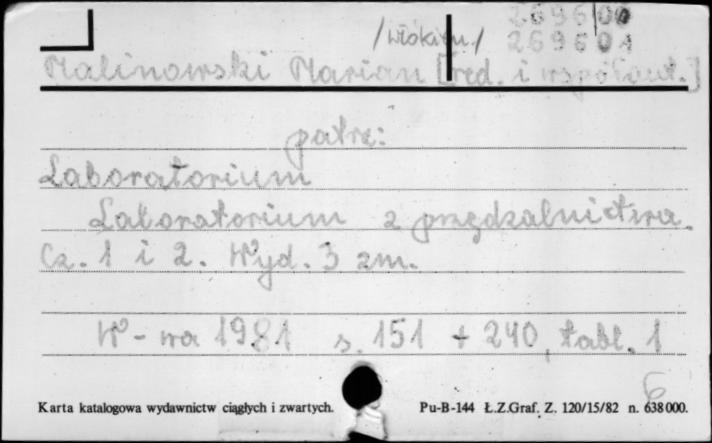 269600
/włókien./ 269601
Malinowski Marian [red. i współaut.]
patrz:
Laboratorium
Laboratorium z przędzalnictwa.
Cz. 1 i 2. Wyd. 3 zm.
W-wa 1981 s. 151 + 240, tabl. 1
6
Karta katalogowa wydawnictw ciągłych i zwartych. Pu-B-144 Ł.Z.Graf. Z. 120/15/82 n. 638000.